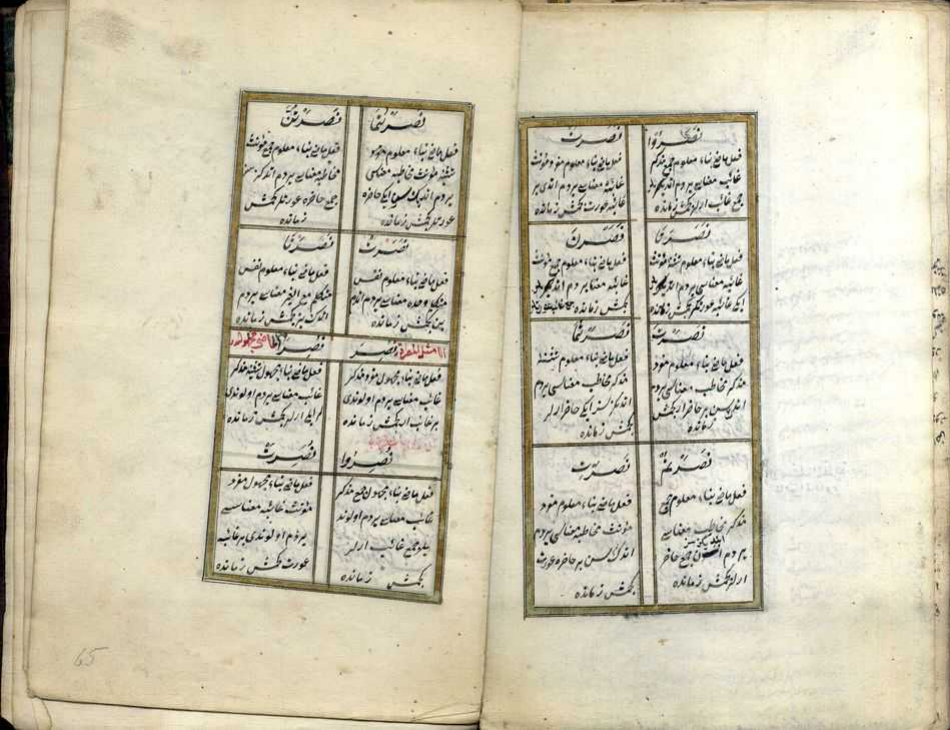 نصروا
فعل ماضی بناء معلوم جمع مذکر
غائب معناسی یردم اندیلر
جمع غائب ارلر کچمش زمانده
نصرت
فعل ماضی بناء معلوم مفرد مؤنث
غائبه معناسی یردم اندی بر
غائبه عورت کچمش زمانده
نصرتا
فعل ماضی بناء معلوم تثنیه مؤنث
غائبه معناسی یردم اندیلر
ایکی غائبه عورتلر کچمش زمانده
نصرن
فعل ماضی بناء معلوم جمع مؤنث
غائبه معناسی یردم اندیلر
کچمش زمانده
نصرت
فعل ماضی بناء معلوم مفرد
مذکر مخاطب معناسی یردم
اندک سن بر حاضر ار کچمش
زمانده
نصرتما
فعل ماضی بناء معلوم تثنیه
مذکر مخاطب معناسی یردم
اندکز سز ایکی حاضر ارلر
کچمش زمانده
نصرتم
فعل ماضی بناء معلوم جمع
مذکر مخاطب معناسی
یردم جمع حاضر
ارلر کچمش زمانده
نصرت
فعل ماضی بناء معلوم مفرد
مؤنث مخاطبه معناسی یردم
اندک سن بر حاضره عورت
کچمش زمانده
نصرتما
فعل ماضی بناء معلوم
تثنیه مؤنث مخاطبه معناسی
یردم ایکی حاضره
عورتلر کچمش زمانده
نصرتن
فعل ماضی بناء معلوم جمع مؤنث
مخاطبه معناسی یردم اندکز سز
جمع حاضره عورتلر کچمش
زمانده
نصرت
فعل ماضی بناء معلوم نفس
متکلم وحده معناسی یردم اندم
بن کچمش زمانده
نصرنا
فعل ماضی بناء معلوم نفس
متکلم مع الغیر معناسی یردم
اندک بز کچمش زمانده
نصر
فعل ماضی بناء مجهول مفرد مذکر
غائب معناسی یردم اولوندی
بر غائب ار کچمش زمانده
نصرا
فعل ماضی بناء مجهول تثنیه مذکر
غائب معناسی یردم اولوندی
ایکی ارلر کچمش زمانده
نصروا
فعل ماضی بناء مجهول جمع مذکر
غائب معناسی یردم اولوند
یلر جمع غائب ارلر
کچمش زمانده
نصرت
فعل ماضی بناء مجهول مفرد
مؤنث غائبه معناسی
یردم اولوندی بر غائبه
عورت کچمش زمانده
65